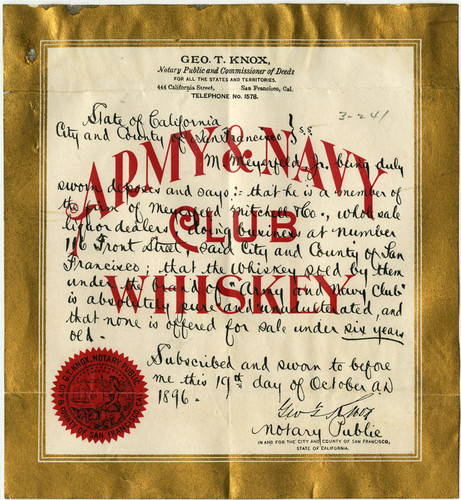 GEO. T. KNOX,
Notary Public and Commissioner of Deeds
FOR ALL THE STATES AND TERRITORIES.
444 California Street, San Francisco, Cal.
TELEPHONE No. 1578.
3-241
State of California
City and County of San Francisco } s.s.
M Meyerfeld Jr. being duly
sworn deposes and says:- that he is a member of
the firm of Meyerfeld Mitchell & Co., wholesale
liquor dealers, doing business at number
116 Front Street, said City and County of San
Francisco; that the whiskey sold by them
under the brand of "Army and Navy Club"
is absolutely pure and unadulterated, and
that none is offered for sale under six years
old.
ARMY & NAVY
CLUB
WHISKEY
Subscribed and sworn to before
me this 19th day of October A.D.
1896.
Geo T Knox
Notary Public
IN AND FOR THE CITY AND COUNTY OF SAN FRANCISCO,
STATE OF CALIFORNIA.
KNOX, NOTARY PUBLIC
COUNTY OF SAN FRANCISCO